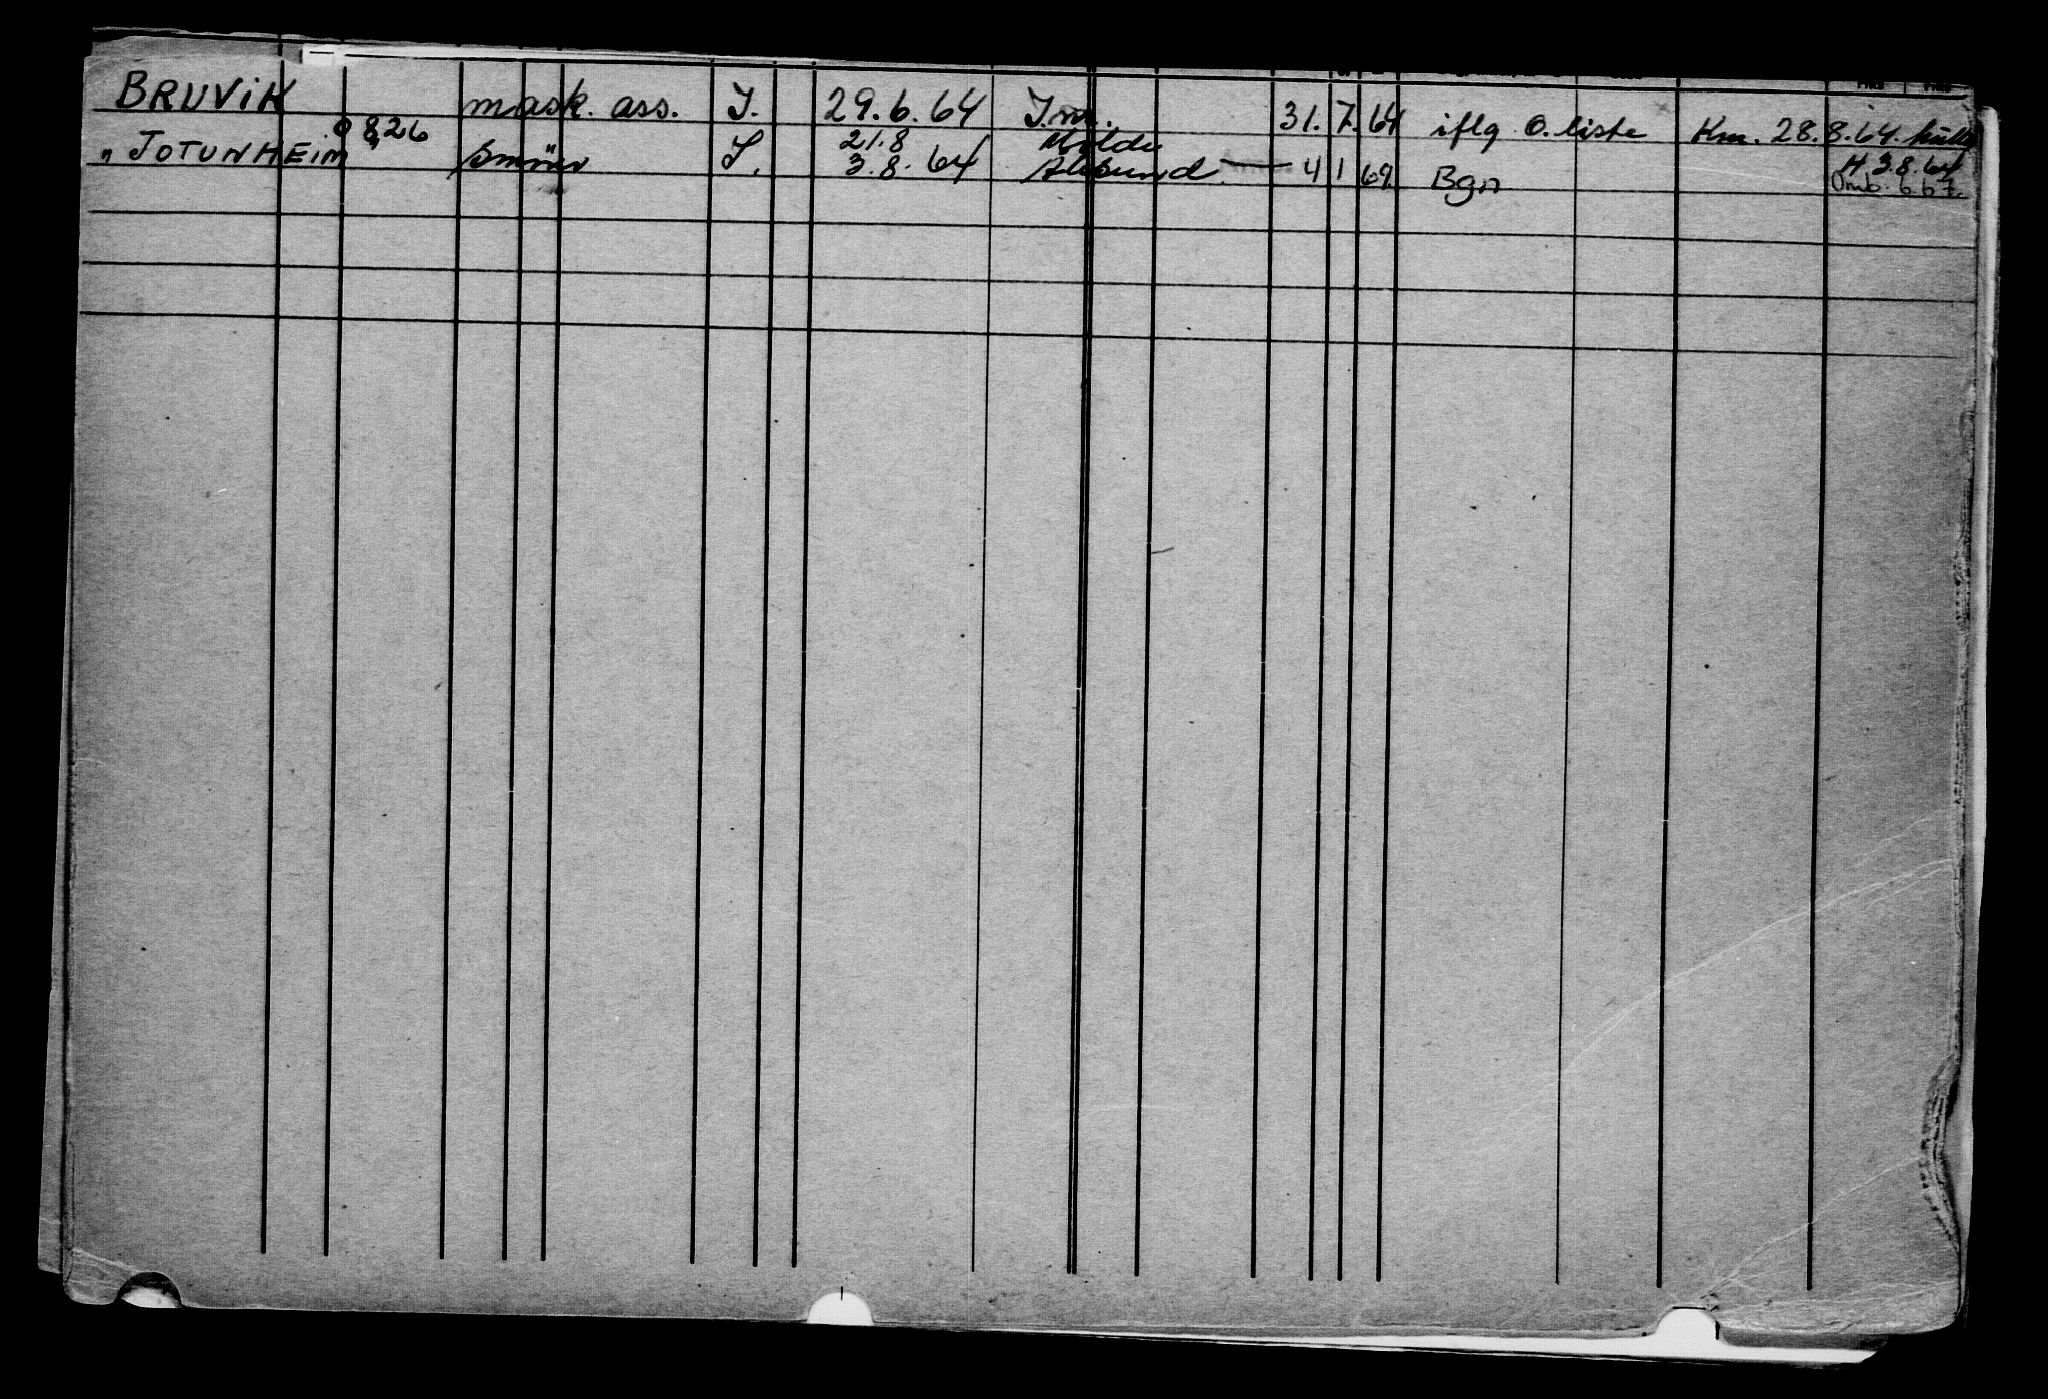 BRUVIK mask. ass. I. 29.6.64 31.7.64 iflg o. liste Km. 28.8.64.
8,26 21.8 Molde
" JOTUNHEIM Smörer S. 3.8.64 Ålesund — 4 1 69 Bgn H 3.8.64
Omb. 6.67.